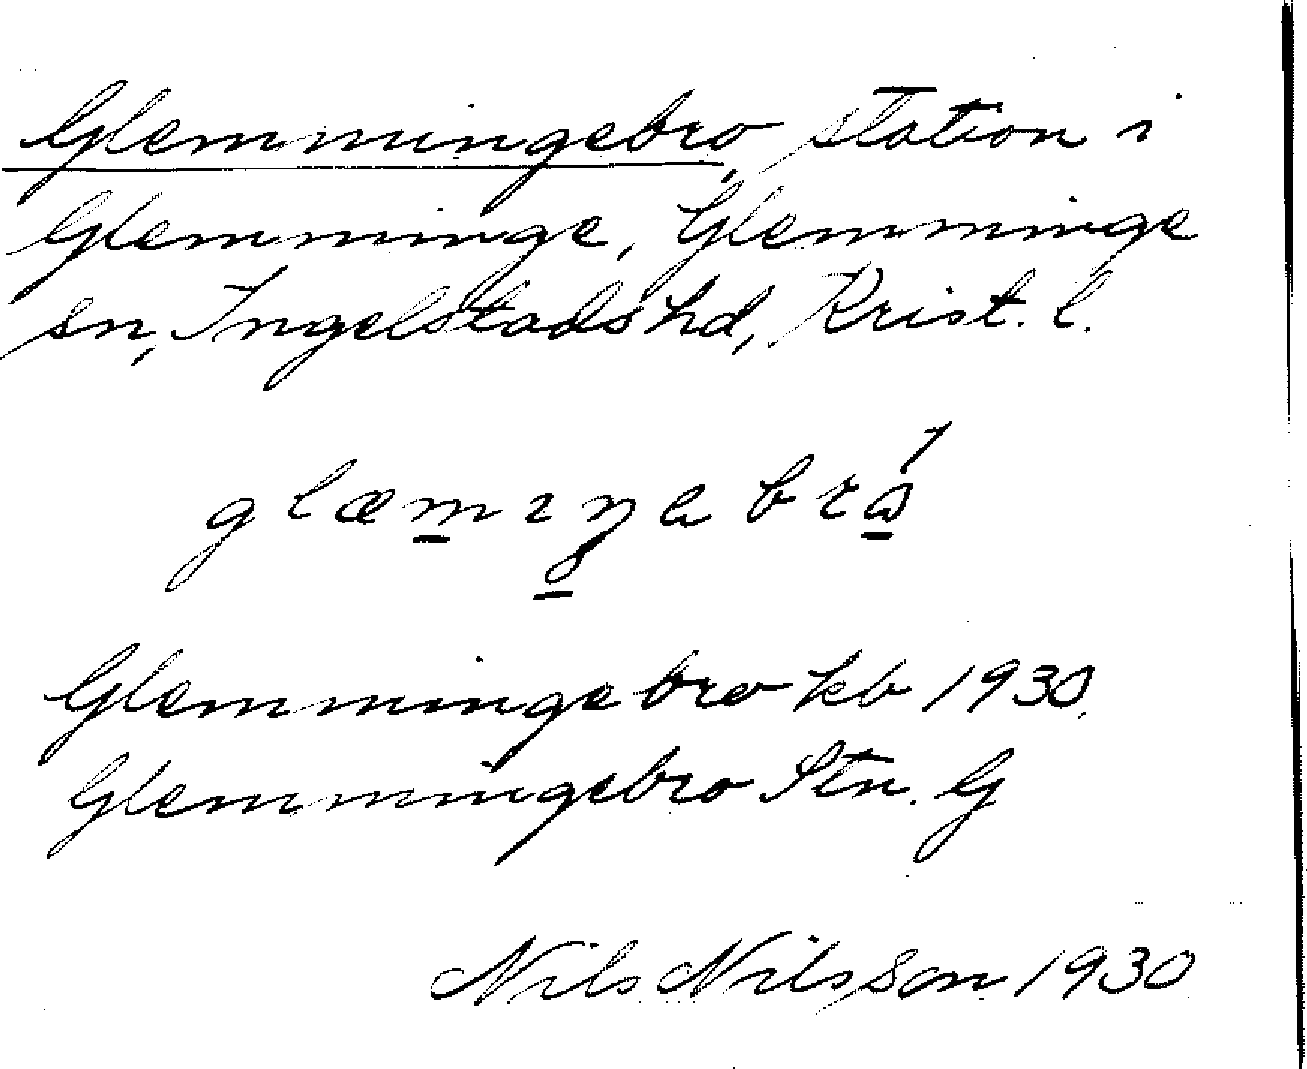 Glemmingebro, station i
Glemminge, Glemminge
sn, Ingelstads hd, Krist. l.
glæmıŋa brå
Glemmingebro kb 1930.
Glemmingebro Stn. G
Nils Nilsson 1930